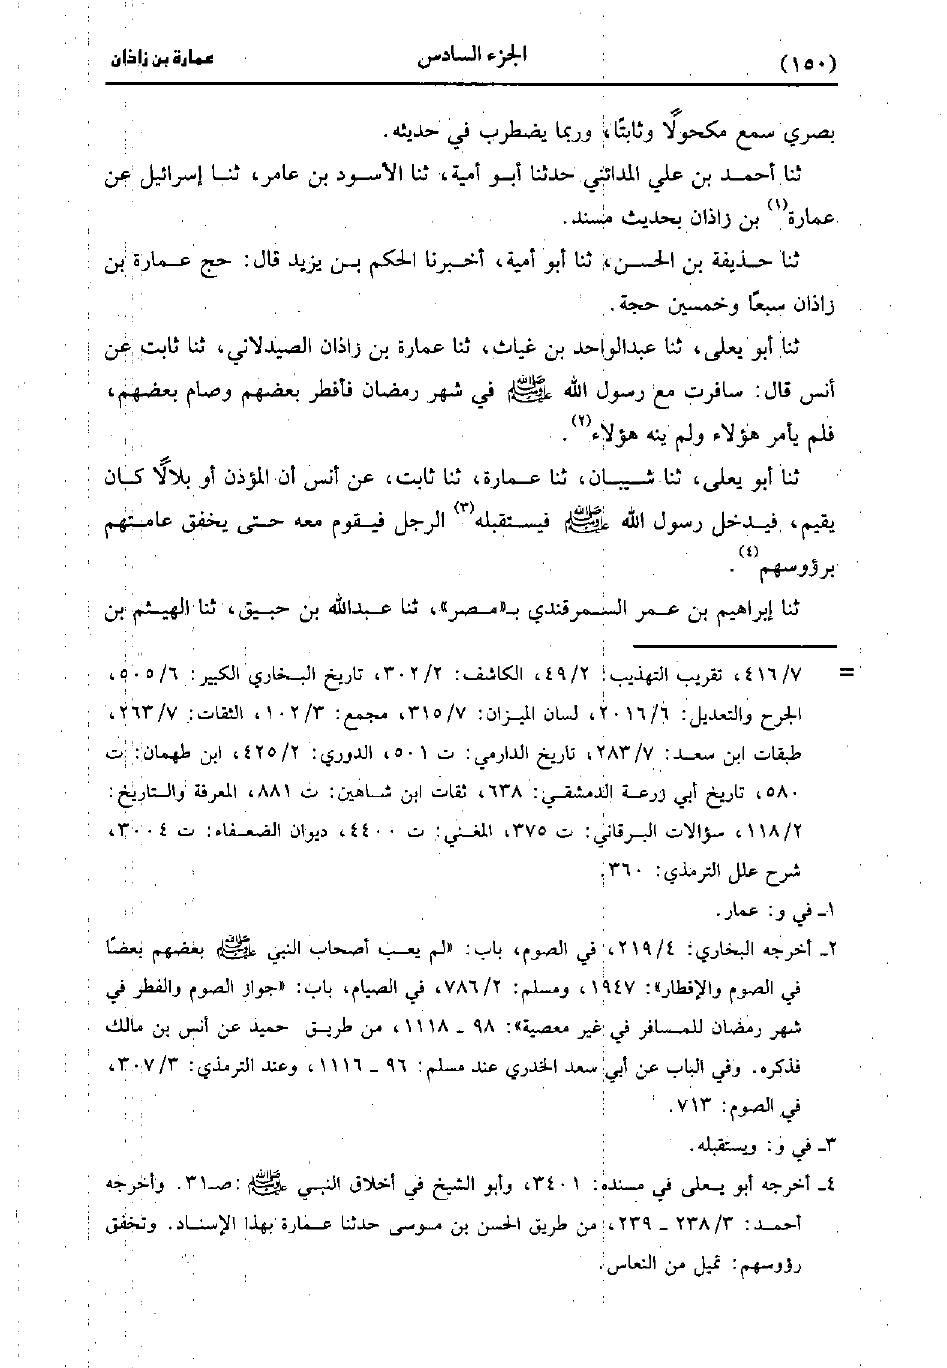 (١٥٠) الجزء السادس عمارة بن زاذان
بصري سمع مكحولًا وثابتًا، وربما يضطرب في حديثه.
ثنا أحمد بن علي المدائني حدثنا أبو أمية، ثنا الأسود بن عامر، ثنا إسرائيل عن
عمارة(١) بن زاذان بحديث مسند.
ثنا حذيفة بن الحسن، ثنا أبو أمية، أخبرنا الحكم بن يزيد قال: حج عمارة بن
زاذان سبعًا وخمسين حجة.
ثنا أبو يعلى، ثنا عبدالواحد بن غياث، ثنا عمارة بن زاذان الصيدلاني، ثنا ثابت عن
أنس قال: سافرت مع رسول الله ﷺ في شهر رمضان فأفطر بعضهم وصام بعضهم،
فلم يأمر هؤلاء ولم ينه هؤلاء(٢).
ثنا أبو يعلى، ثنا شيبان، ثنا عمارة، ثنا ثابت، عن أنس أن المؤذن أو بلالًا كان
يقيم، فيدخل رسول الله ﷺ فيستقبله(٣) الرجل فيقوم معه حتى يخفق عامتهم
برؤوسهم(٤).
ثنا إبراهيم بن عمر السمرقندي بـ«مصر»، ثنا عبدالله بن حبيق، ثنا الهيثم بن
= ٤١٦/٧، تقريب التهذيب: ٤٩/٢، الكاشف: ٣٠٢/٢، تاريخ البخاري الكبير: ٥٠٥/٦،
الجرح والتعديل: ٢٠١٦/٦، لسان الميزان: ٣١٥/٧، مجمع: ١٠٢/٣، الثقات: ٢٦٣/٧،
طبقات ابن سعد: ٢٨٣/٧، تاريخ الدارمي: ت ٥٠١، الدوري: ٤٢٥/٢، ابن طهمان: ت
٥٨٠، تاريخ أبي زرعة الدمشقي: ٦٣٨، ثقات ابن شاهين: ت ٨٨١، المعرفة والتاريخ:
١١٨/٢، سؤالات البرقاني: ت ٣٧٥، المغني: ت ٤٤٠٠، ديوان الضعفاء: ت ٣٠٠٤،
شرح علل الترمذي: ٣٦٠.
١ـ في و: عمار.
٢ـ أخرجه البخاري: ٢١٩/٤، في الصوم، باب: «لم يعب أصحاب النبي ﷺ بعضهم بعضًا
في الصوم والإفطار»: ١٩٤٧، ومسلم: ٧٨٦/٢، في الصيام، باب: «جواز الصوم والفطر في
شهر رمضان للمسافر في غير معصية»: ٩٨ ـ ١١١٨، من طريق حميد عن أنس بن مالك
فذكره. وفي الباب عن أبي سعد الخدري عند مسلم: ٩٦ ـ ١١١٦، وعند الترمذي: ٣٠٧/٣،
في الصوم: ٧١٣.
٣ـ في و: ويستقبله.
٤ـ أخرجه أبو يعلى في مسنده: ٣٤٠١، وأبو الشيخ في أخلاق النبي ﷺ: صـ٣١. وأخرجه
أحمد: ٢٣٨/٣ ـ ٢٣٩، من طريق الحسن بن موسى حدثنا عمارة بهذا الإسناد. وتخفق
رؤوسهم: تميل من النعاس.